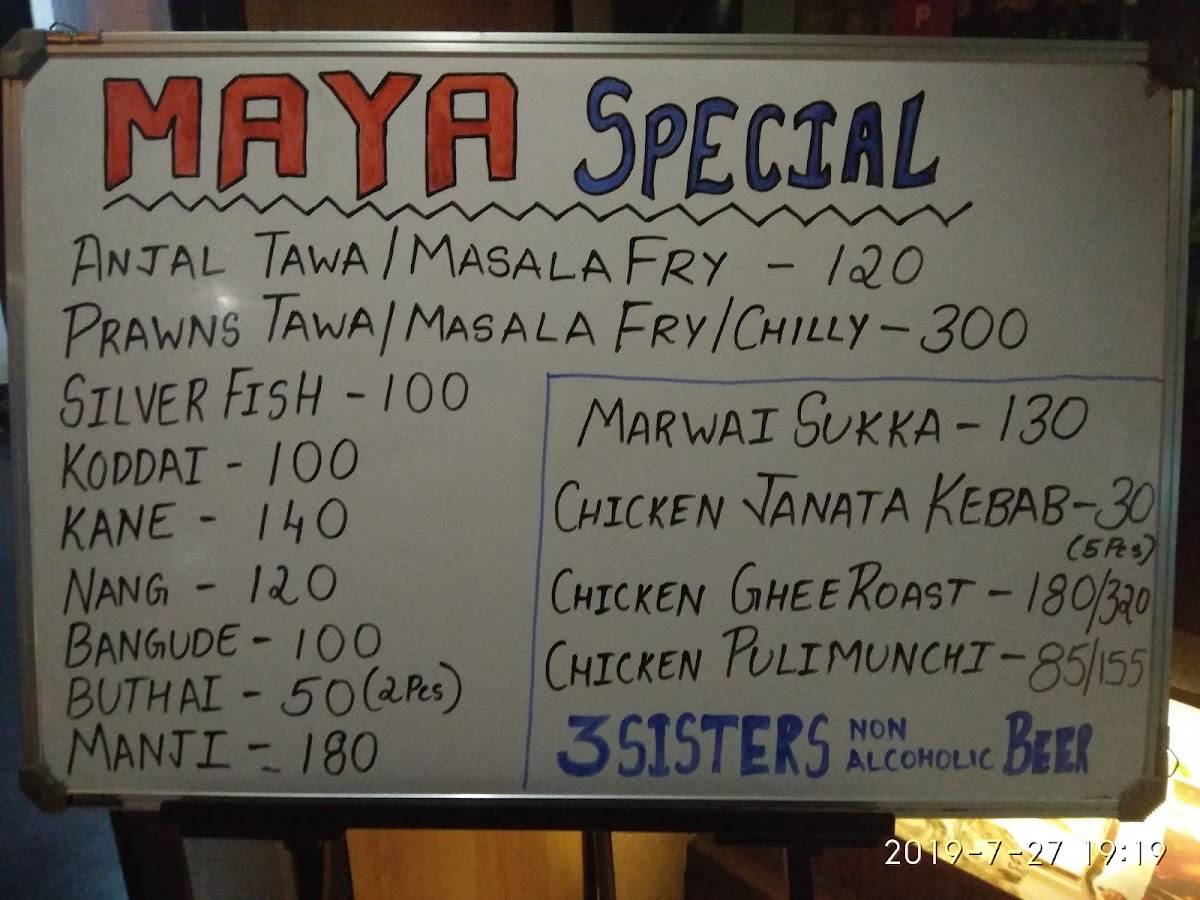 P
MAYA SPECIAL
ANJAL TAWA/MASALA FRY - 120
PRAWNS TAWA/MASALA FRY/CHILLY - 300
SILVER FISH - 100
KODDAI - 100
KANE - 140
NANG - 120
BANGUDE - 100
BUTHAI - 50 (2 Pcs)
MANJI - 180
MARWAI SUKKA - 130
CHICKEN JANATA KEBAB - 30
(5 Pcs)
CHICKEN GHEE ROAST - 180/320
CHICKEN PULIMUNCHI - 85/155
3 SISTERS NON ALCOHOLIC BEER
2019-7-27 19:19